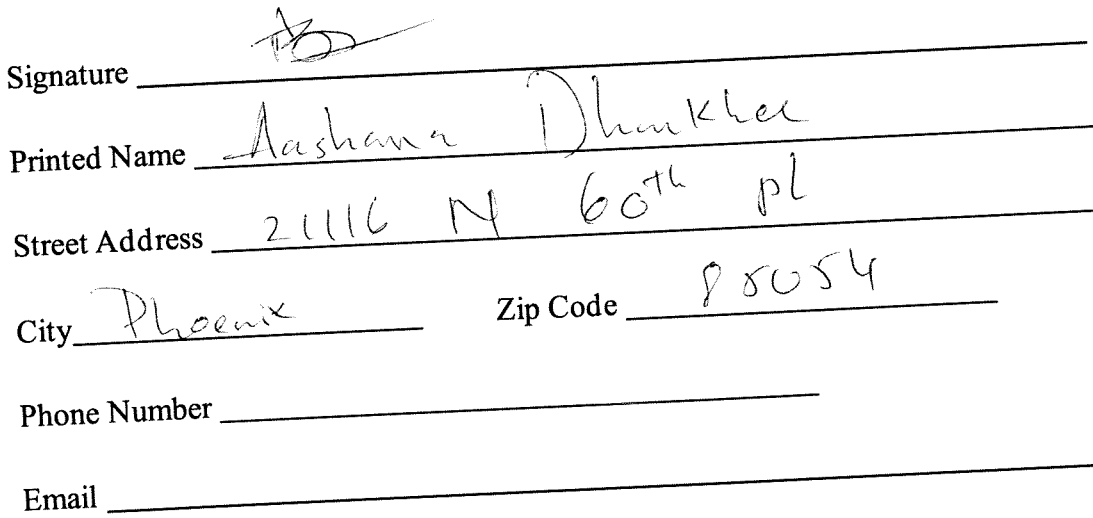 Signature
Printed Name Aashana
Street Address 21116 N 60th pl
City Phoenix Zip Code 85054
Phone Number
Email